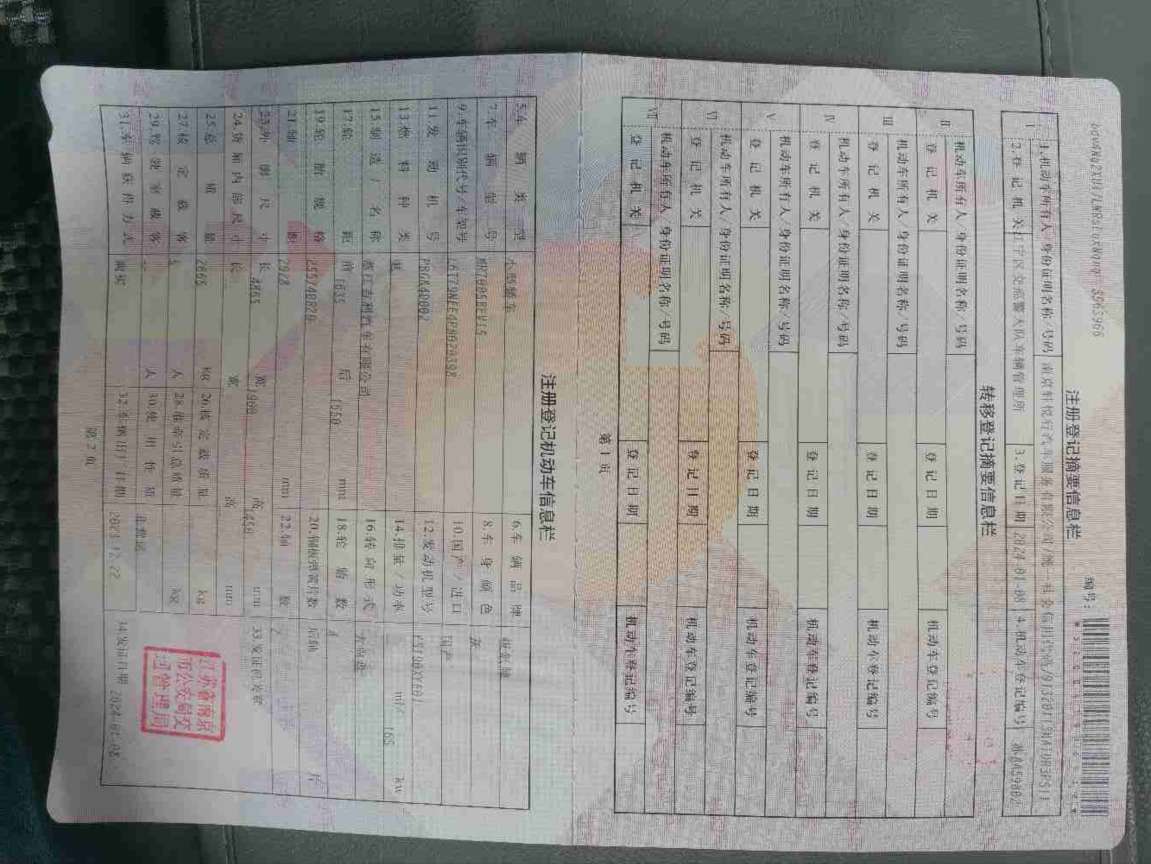 注册登记摘要信息栏
编号:
I
1.机动车所有人/身份证明名称/号码
2.登记机关
车辆管理所
3.登记日期 2024-01-08
4.机动车登记编号
转移登记摘要信息栏
II
机动车所有人/身份证明名称/号码
登记机关
登记日期
机动车登记编号
III
机动车所有人/身份证明名称/号码
登记机关
登记日期
机动车登记编号
IV
机动车所有人/身份证明名称/号码
登记机关
登记日期
机动车登记编号
V
机动车所有人/身份证明名称/号码
登记机关
登记日期
机动车登记编号
VI
机动车所有人/身份证明名称/号码
登记机关
登记日期
机动车登记编号
VII
机动车所有人/身份证明名称/号码
登记机关
登记日期
机动车登记编号
第 1 页
注册登记机动车信息栏
5.车辆类型 小型轿车
6.车辆品牌
7.车辆型号
8.车身颜色 灰
9.车辆识别代号/车架号
10.国产/进口 国产
11.发动机号
12.发动机型号
13.燃料种类
14.排量/功率 ml/ 165 kw
15.制造厂名称
16.转向形式 方向盘
17.轮距 前 1635 后 1650 mm
18.轮胎数 4
19.轮胎规格 255/40R20
20.钢板弹簧片数 后轴 片
21.轴距 2928 mm
22.轴数 2
23.外廓尺寸 长 4865 宽 1900 高 1450 mm
33.发证机关章
24.货厢内部尺寸 长 宽 高 mm
25.总质量 2665 kg
26.核定载质量 kg
27.核定载客 5 人
28.准牵引总质量 kg
29.驾驶室载客 人
30.使用性质 非营运
31.车辆获得方式 购买
32.车辆出厂日期 2023-12-22
34.发证日期 2024-01-08
江苏省南京
市公安局交
通管理局
第 2 页